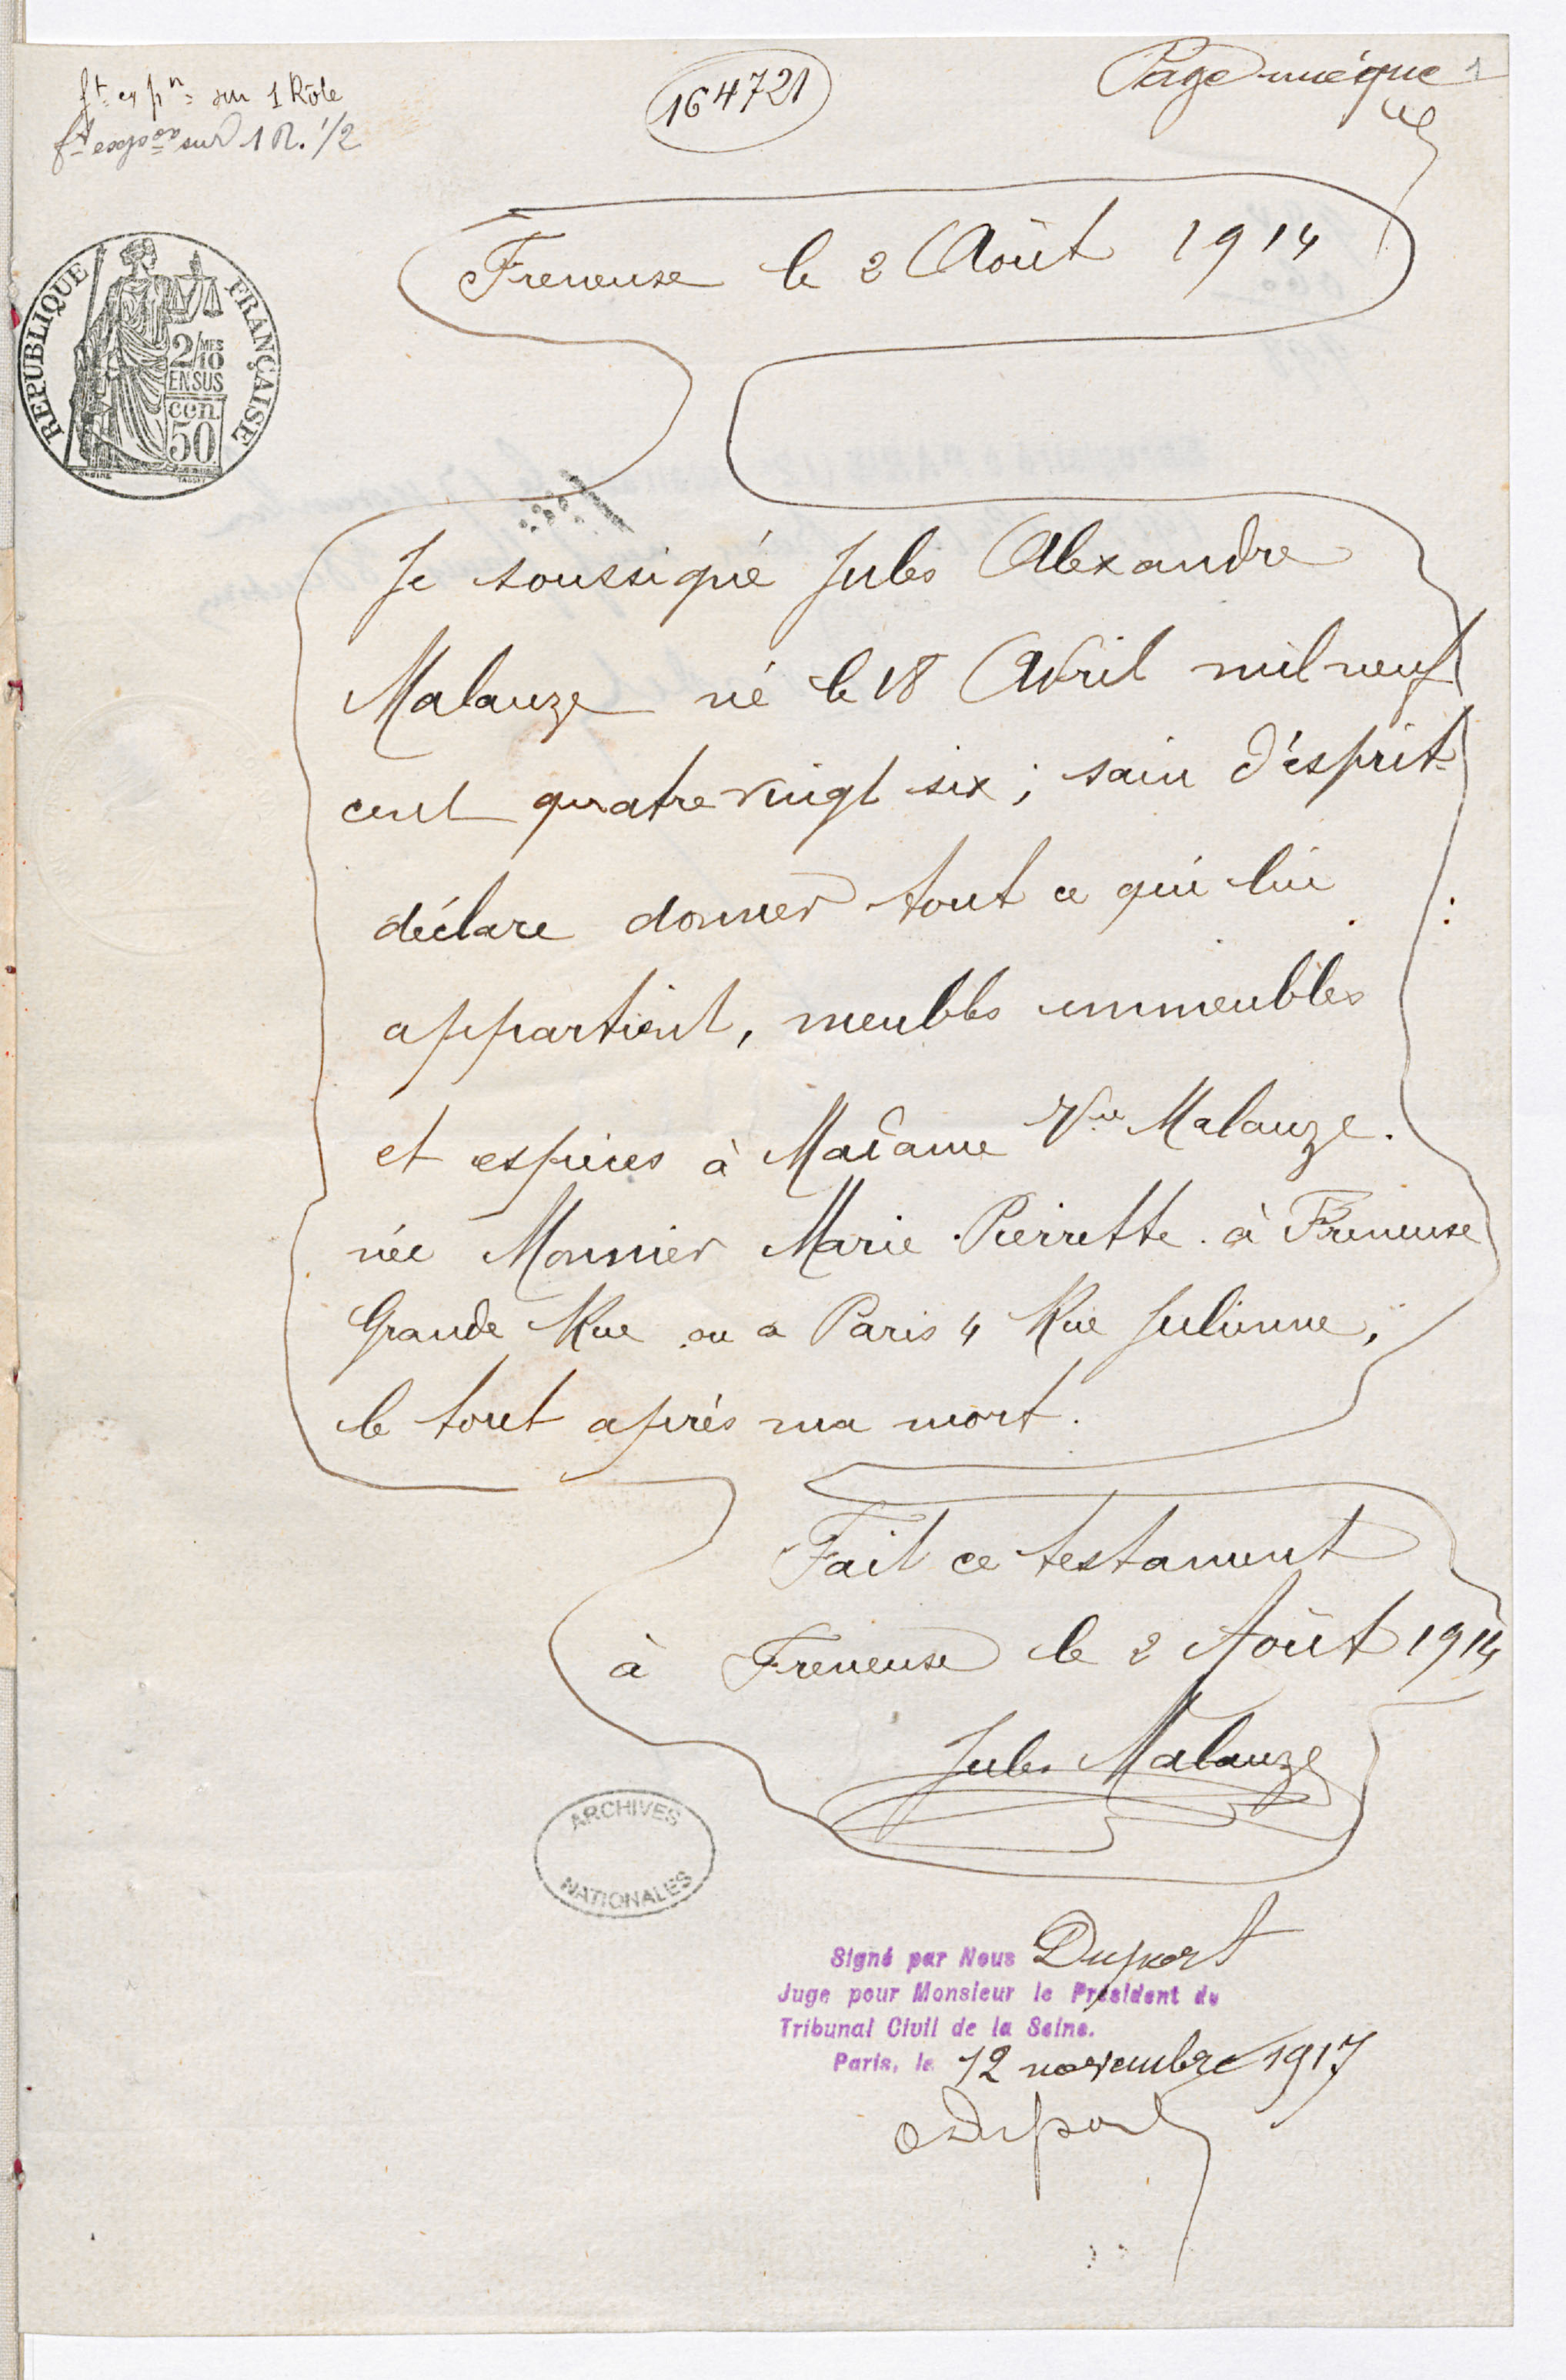 ft exp.n sur 1 Rôle
ft expon sur 1 R. 1/2
164721
Page unique
1
REPUBLIQUE FRANÇAISE
2/MES
10
EN SUS
cen.
50
Freneuse le 2 Août 1914
Je soussigné Jules Alexandre
Malauze né le 18 Avril mil neuf
cent quatre vingt six ; sain d'ésprit
déclare donner tout ce qui lui
appartient, meubles immeubles
et espèces à Madame Vve Malauze.
née Monnier Marie Pierrette. à Freneuse
Grande Rue ou a Paris 4 Rue Julienne,
le tout après ma mort.
Fait ce testament
à Freneuse le 2 Août 1914
Jules Malauze
ARCHIVES
NATIONALES
Signé par Nous Duport
Juge pour Monsieur le Président du
Tribunal Civil de la Seine.
Paris, le 12 novembre 1917
Duport